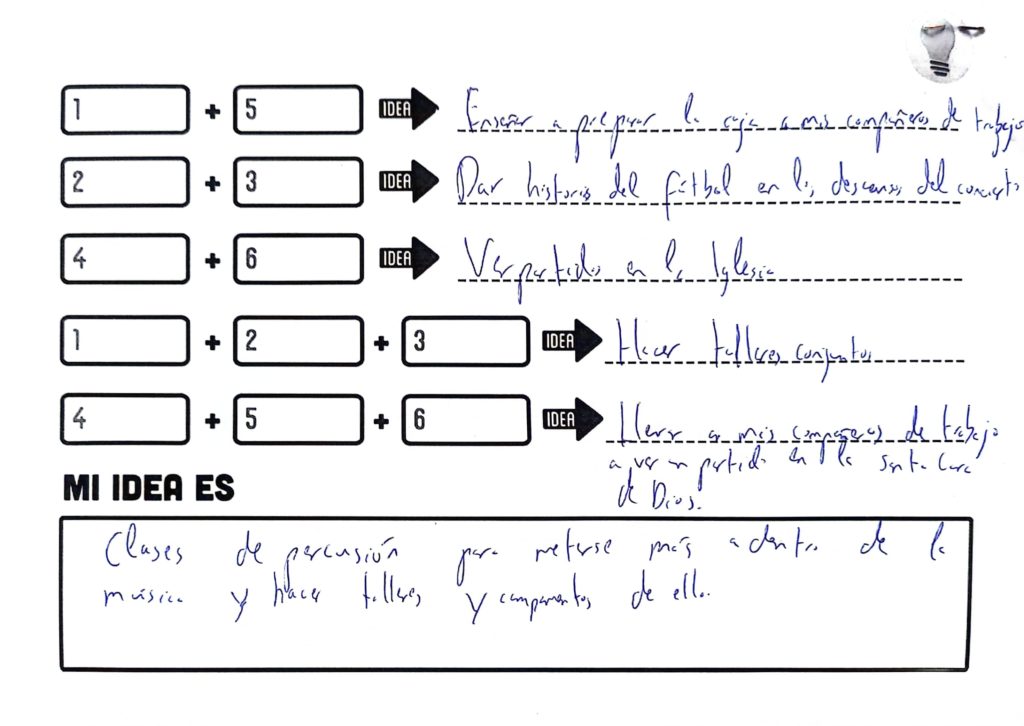 1 + 5 IDEA Enseñar a preparar la caja a mis compañeros de trabajo
2 + 3 IDEA Dar historia del fútbol en los descansos del concierto
4 + 6 IDEA Ver partidos en la Iglesia
1 + 2 + 3 IDEA Hacer talleres conjuntos
4 + 5 + 6 IDEA Llevar a mis compañeros de trabajo
a ver un partido en la Santa Casa
de Dios.
MI IDEA ES
Clases de percusión para meterse más adentro de la
música y hacer talleres y campamentos de ello.